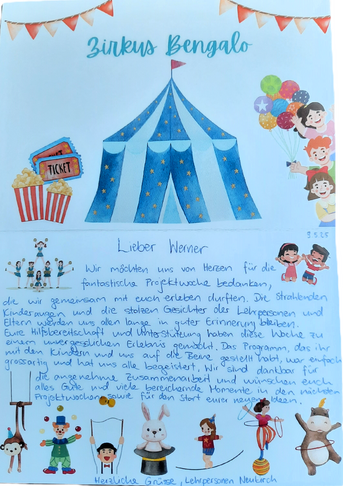 Zirkus Bengalo
TICKET
Lieber Werner
Wir möchten uns von Herzen für die
fantastische Projektwoche bedanken,
die wir gemeinsam mit euch erleben durften. Die strahlenden
Kinderaugen und die stolzen Gesichter des Lehrpersonen und
Eltern werden uns allen lange in guter Erinnerung bleiben.
Eure Hilfsbereitschaft und Unterstützung haben diese Woche zu
einem unvergesslichen Erlebnis gemacht. Das Programm, das ihr
mit den Kindern und uns auf die Beine gestellt habt, war einfach
grossartig und hat uns alle begeistert. Wir sind dankbar für
die angenehme Zusammenarbeit und wünschen euch
alles Gute und viele bereichernde Momente in den nächsten
Projektwochen sowie für den Start eurer neuen Ideen.
Herzliche Grüsse, Lehrpersonen Neukirch